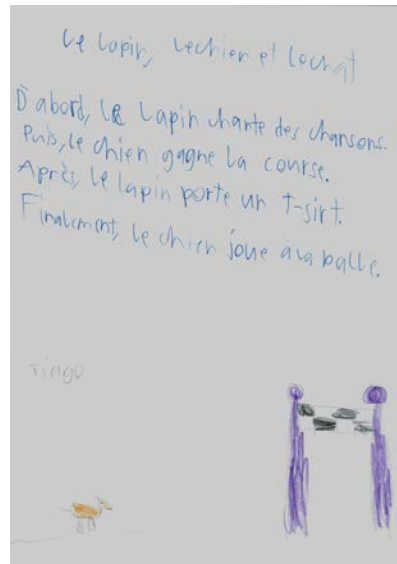 Le Lapin, Lechien et Lechat
D'abord, le Lapin chante des chansons.
Puis, le chien gagne la course.
Après, le lapin porte un t-sirt.
Finalement, le chien joue à la balle.